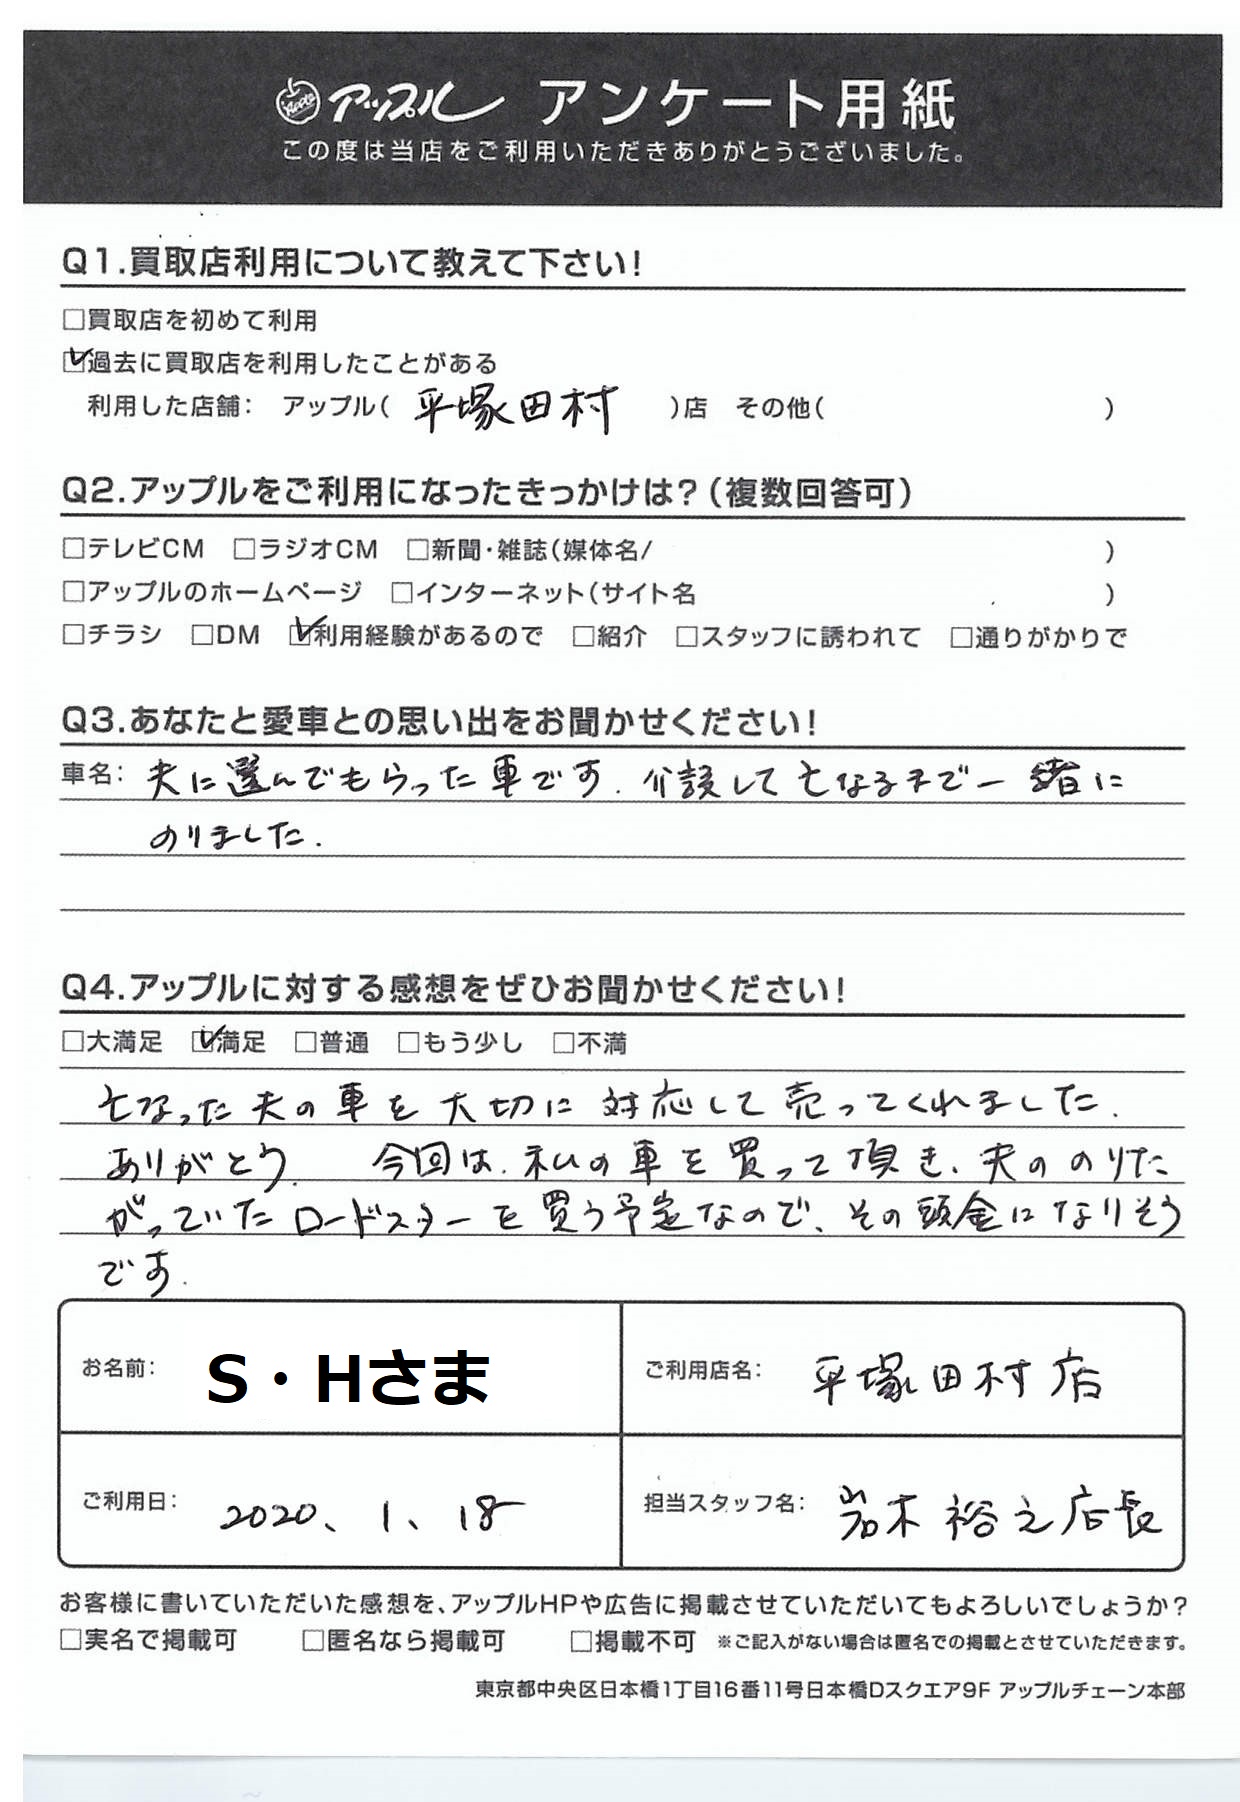 Apple アップル アンケート用紙
この度は当店をご利用いただきありがとうございました。
Q1.買取店利用について教えて下さい!
□買取店を初めて利用
☑過去に買取店を利用したことがある
利用した店舗: アップル( 平塚田村 )店 その他( )
Q2.アップルをご利用になったきっかけは?(複数回答可)
□テレビCM □ラジオCM □新聞・雑誌(媒体名/ )
□アップルのホームページ □インターネット(サイト名 )
□チラシ □DM ☑利用経験があるので □紹介 □スタッフに誘われて □通りがかりで
Q3.あなたと愛車との思い出をお聞かせください!
車名: 夫に選んでもらった車です. 介護して亡なるまで一緒に
のりました.
Q4.アップルに対する感想をぜひお聞かせください!
□大満足 ☑満足 □普通 □もう少し □不満
亡なった夫の車を大切に対応して売ってくれました.
ありがとう. 今回は、私の車を買って頂き、夫ののりた
がっていたロードスターを買う予定なので、その頭金になりそう
です.
お名前: S・Hさま ご利用店名: 平塚田村店
ご利用日: 2020、1、18 担当スタッフ名: 岩木裕之店長
お客様に書いていただいた感想を、アップルHPや広告に掲載させていただいてもよろしいでしょうか?
□実名で掲載可 □匿名なら掲載可 □掲載不可 ※ご記入がない場合は匿名での掲載とさせていただきます。
東京都中央区日本橋1丁目16番11号日本橋Dスクエア9F アップルチェーン本部